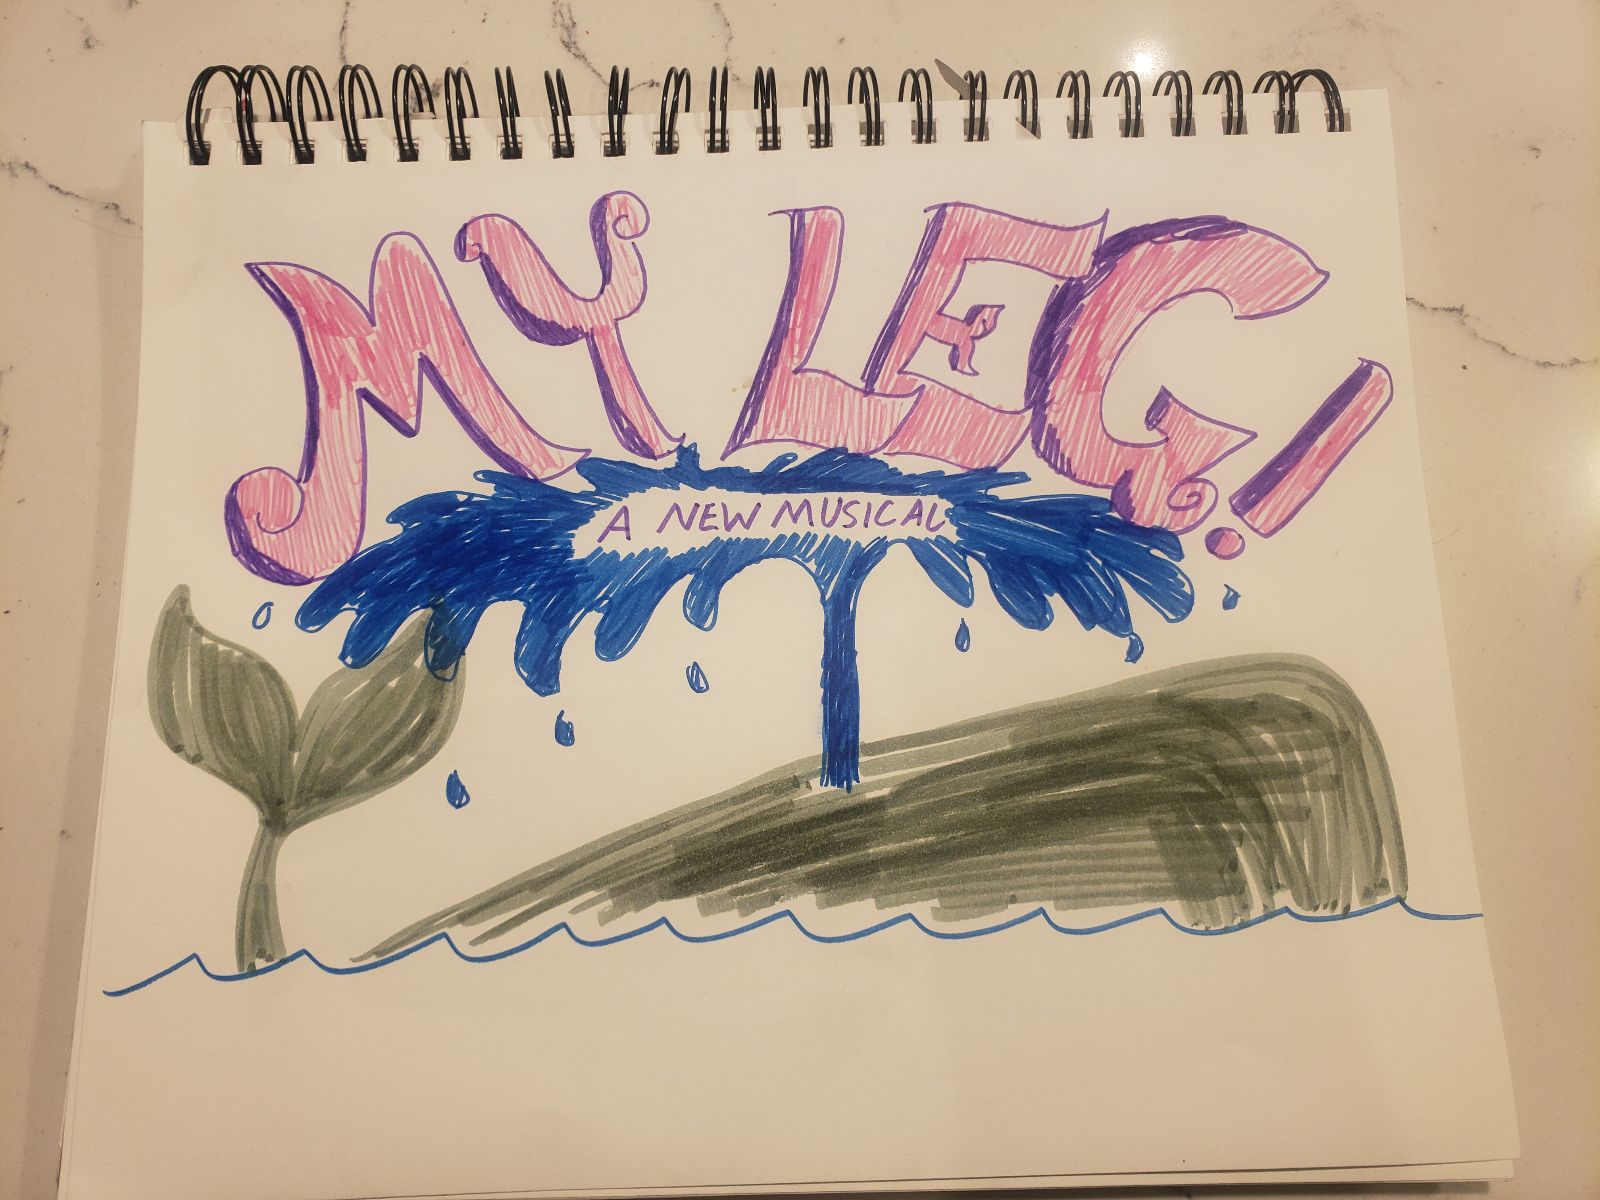 MY LEG!
A NEW MUSICAL